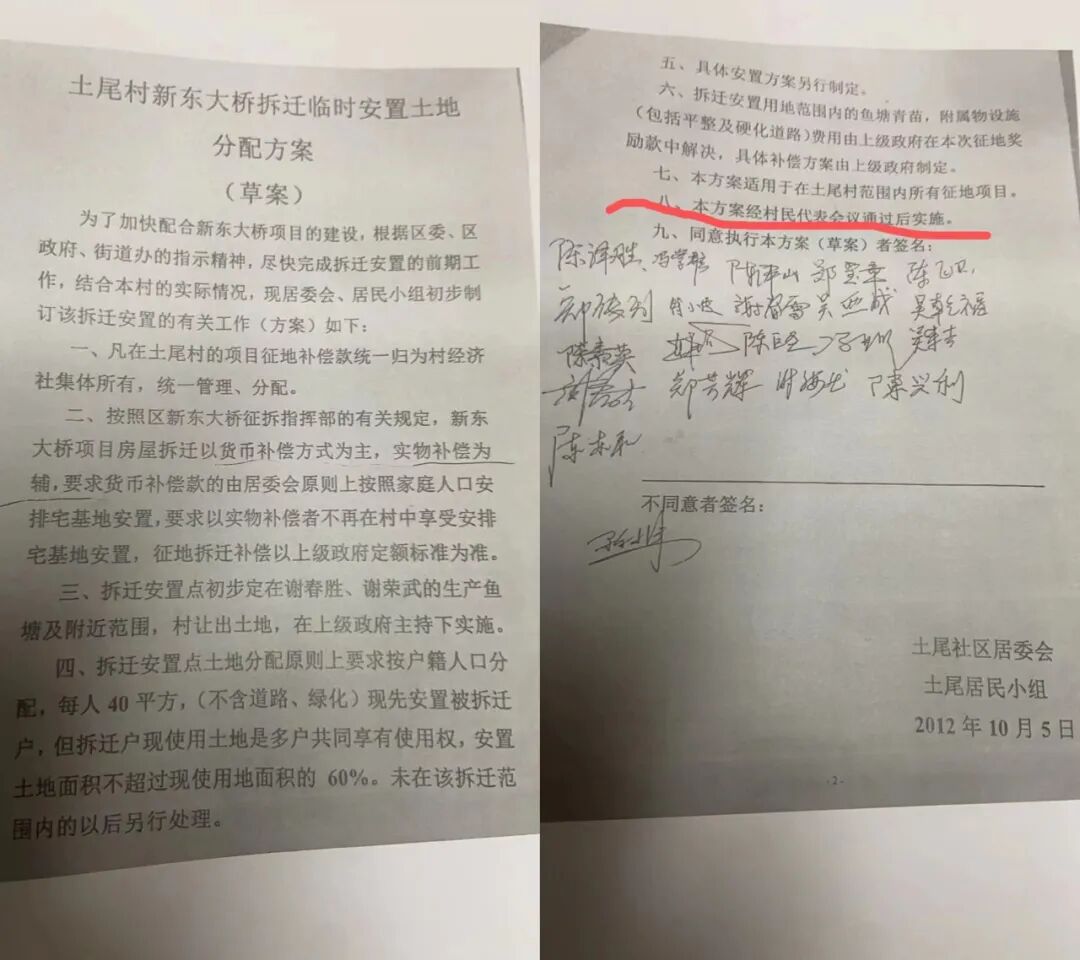 土尾村新东大桥拆迁临时安置土地
分配方案
（草案）
为了加快配合新东大桥项目的建设，根据区委、区
政府、街道办的指示精神，尽快完成拆迁安置的前期工
作，结合本村的实际情况，现居委会、居民小组初步制
订该拆迁安置的有关工作（方案）如下：
一、凡在土尾村的项目征地补偿款统一归为村经济
社集体所有，统一管理、分配。
二、按照区新东大桥征拆指挥部的有关规定，新东
大桥项目房屋拆迁以货币补偿方式为主，实物补偿为
辅，要求货币补偿款的由居委会原则上按照家庭人口安
排宅基地安置，要求以实物补偿者不再在村中享受安排
宅基地安置，征地拆迁补偿以上级政府定额标准为准。
三、拆迁安置点初步定在谢春胜、谢荣武的生产鱼
塘及附近范围，村让出土地，在上级政府主持下实施。
四、拆迁安置点土地分配原则上要求按户籍人口分
配，每人 40 平方，（不含道路、绿化）现先安置被拆迁
户，但拆迁户现使用土地是多户共同享有使用权，安置
土地面积不超过现使用地面积的 60%。未在该拆迁范
围内的以后另行处理。
五、具体安置方案另行制定。
六、拆迁安置用地范围内的鱼塘青苗，附属物设施
（包括平整及硬化道路）费用由上级政府在本次征地奖
励款中解决，具体补偿方案由上级政府制定。
七、本方案适用于在土尾村范围内所有征地项目。
八、本方案经村民代表会议通过后实施。
九、同意执行本方案（草案）者签名：
郑芳辉 陈兴利
不同意者签名：
土尾社区居委会
土尾居民小组
2012 年 10 月 5 日
-2-